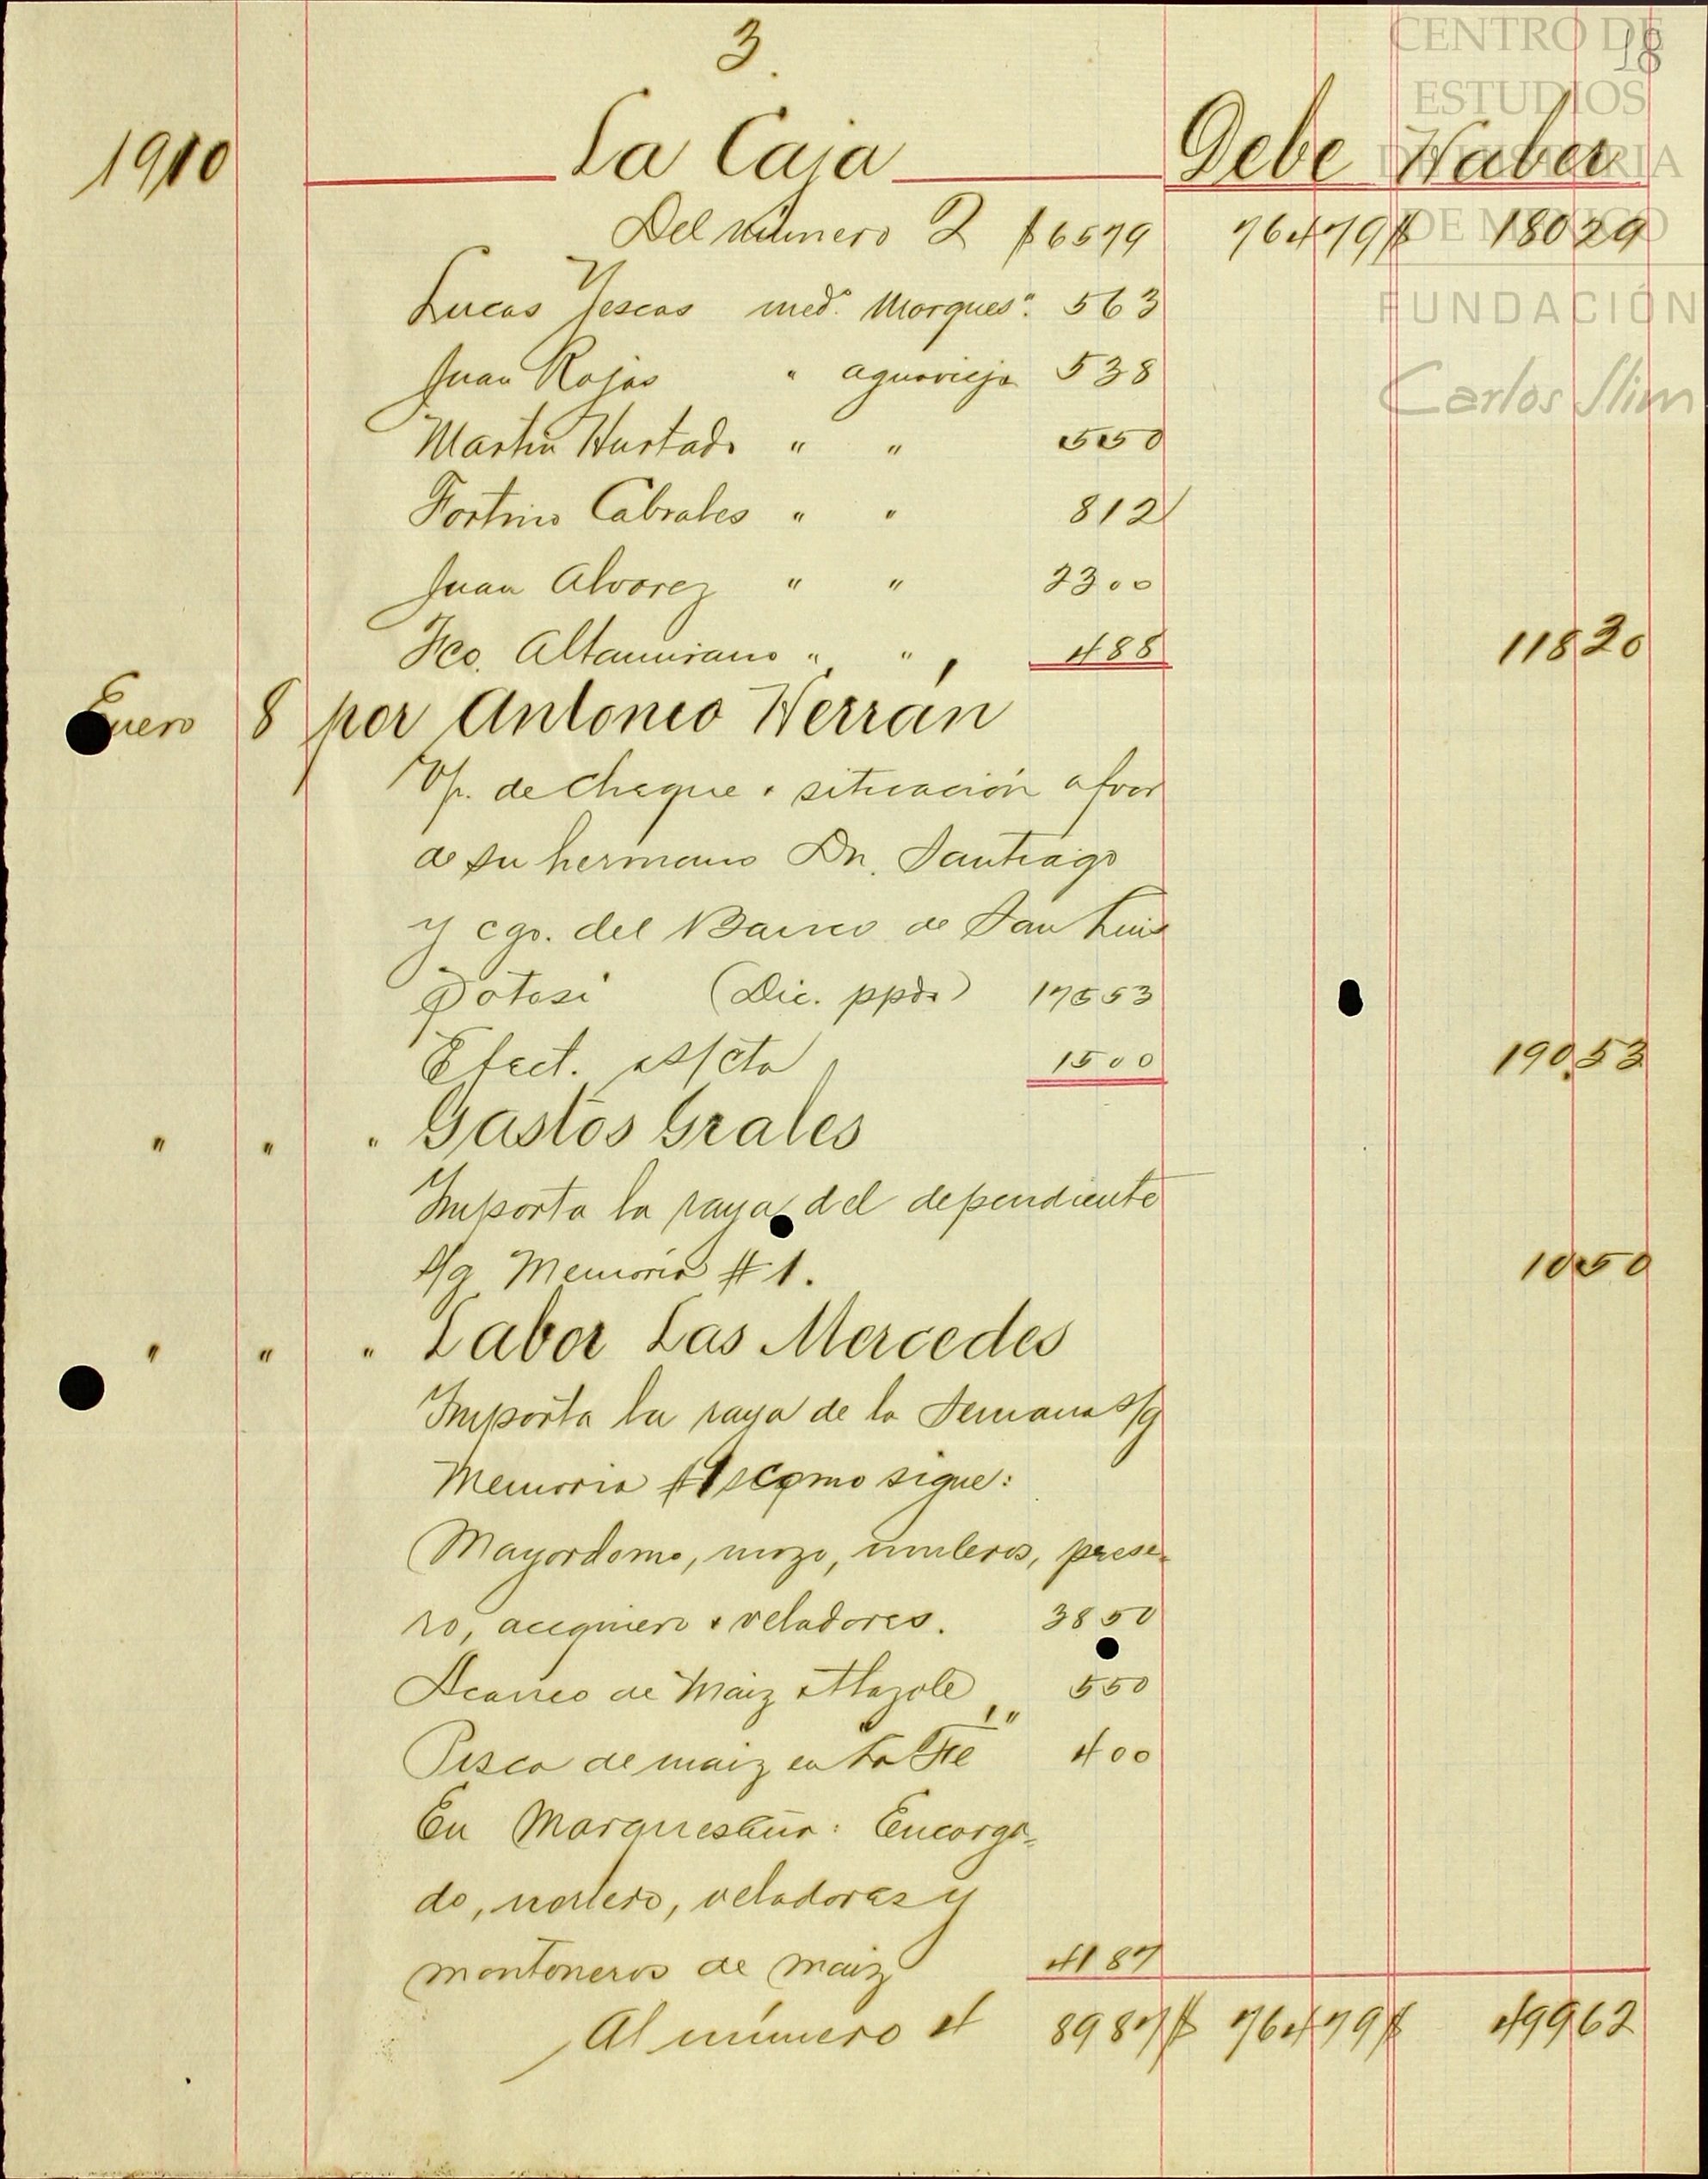 3.
18
1910 La Caja Debe Haber
Del número 2 $ 6579 76479 $ 18029
Lucas Yescas med.ª Marques.ª 563
Juan Rojas " aguavieja 538
Martin Hurtado " " 550
Fortino Cabrales " " 812
Juan Alvarez " " 2300
Fco. Altamirano " " 488 11830
Enero 8 por Antonio Herrán
V/. de cheque + situación a fvor
de su hermano Dn. Santiago
y cgo. del Banco de San Luis
Potosi (Dic. ppdo) 17553
Efect. s/cta 1500 190.53
" " " Gastos Grales
Importa la raya del dependiente
s/g Memoria #1. 1050
" " " Labor Las Mercedes
Importa la raya de la Semana s/g
Memoria #1 como sigue:
Mayordomo, mozo, muleros, prese=
ro, acequiero + veladores. 3850
Acarreo de Maiz + tlazole 550
Pisca de maiz en "La Fé" 400
En Marquesaña: Encarga=
do, nortero, veladores y
montoneros de maiz 4187
Al número 4 8987 $ 76479 $ 49962
CENTRO DE
ESTUDIOS
DE HISTORIA
DE MÉXICO
FUNDACIÓN
Carlos Slim